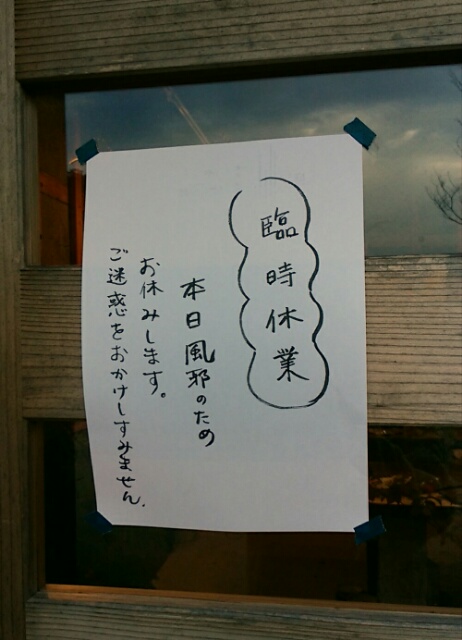 臨時休業
本日風邪のため
お休みします。
ご迷惑をおかけしすみません.